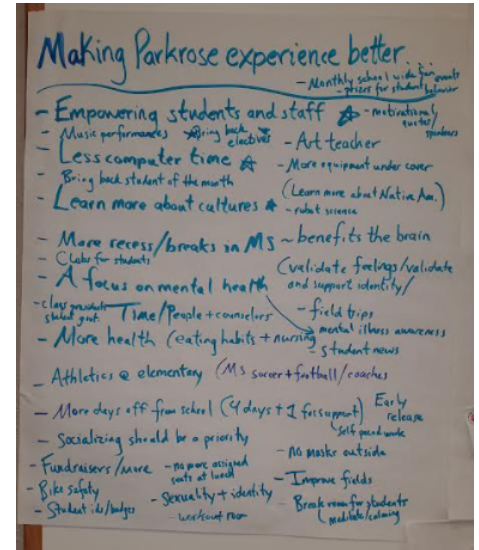 Making Parkrose experience better...
- Monthly school wide fun events
- prizes for student behavior
- Empowering students and staff
- motivational quotes/
speakers
- Music performances
Bring back
electives
- Art teacher
- Less computer time
- More equipment under cover
- Bring back student of the month
(Learn more about Native Am.)
- Learn more about cultures
- robot science
- More recess/breaks in MS ~ benefits the brain
- Clubs for students
- A focus on mental health
(validate feelings/validate
and support identity/
- class presidents
student govt.
Time/People + counselors
- field trips
mental illness awareness
- More health (eating habits + nursing
- student news
- Athletics @ elementary (MS soccer + football/coaches
- More days off from school (4 days + 1 for support)
Early
release
self paced work
- Socializing should be a priority
- no masks outside
- Fundraisers/more
- no more assigned
seats at lunch
- Improve fields
- Bike safety
- Sexuality + identity
- Break room for students
(meditate/calming
- Student ids/badges
- workout room